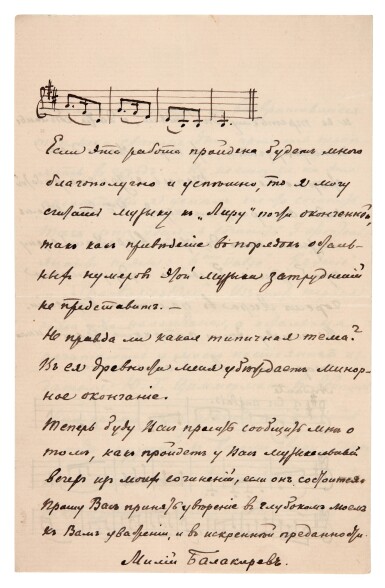 Если эта работа пройдена будетъ мною
благополучно и успѣшно, то я могу
считать музыку къ „Лиру“ почти оконченной,
такъ какъ приведеніе въ порядокъ осталь-
ныхъ нумеровъ этой музыки затрудненій
не представитъ. —
Не правда ли какая типичная тема?
Въ ея древности меня убѣждаетъ минор-
ное окончаніе.
Теперь буду Васъ просить сообщить мнѣ о
томъ, какъ пройдетъ у Васъ музыкальный
вечеръ изъ моихъ сочиненій, если онъ состоится.
Прошу Васъ принять увѣреніе въ глубокомъ моемъ
къ Вамъ уваженіи, и въ искренней преданности.
Милій Балакиревъ.